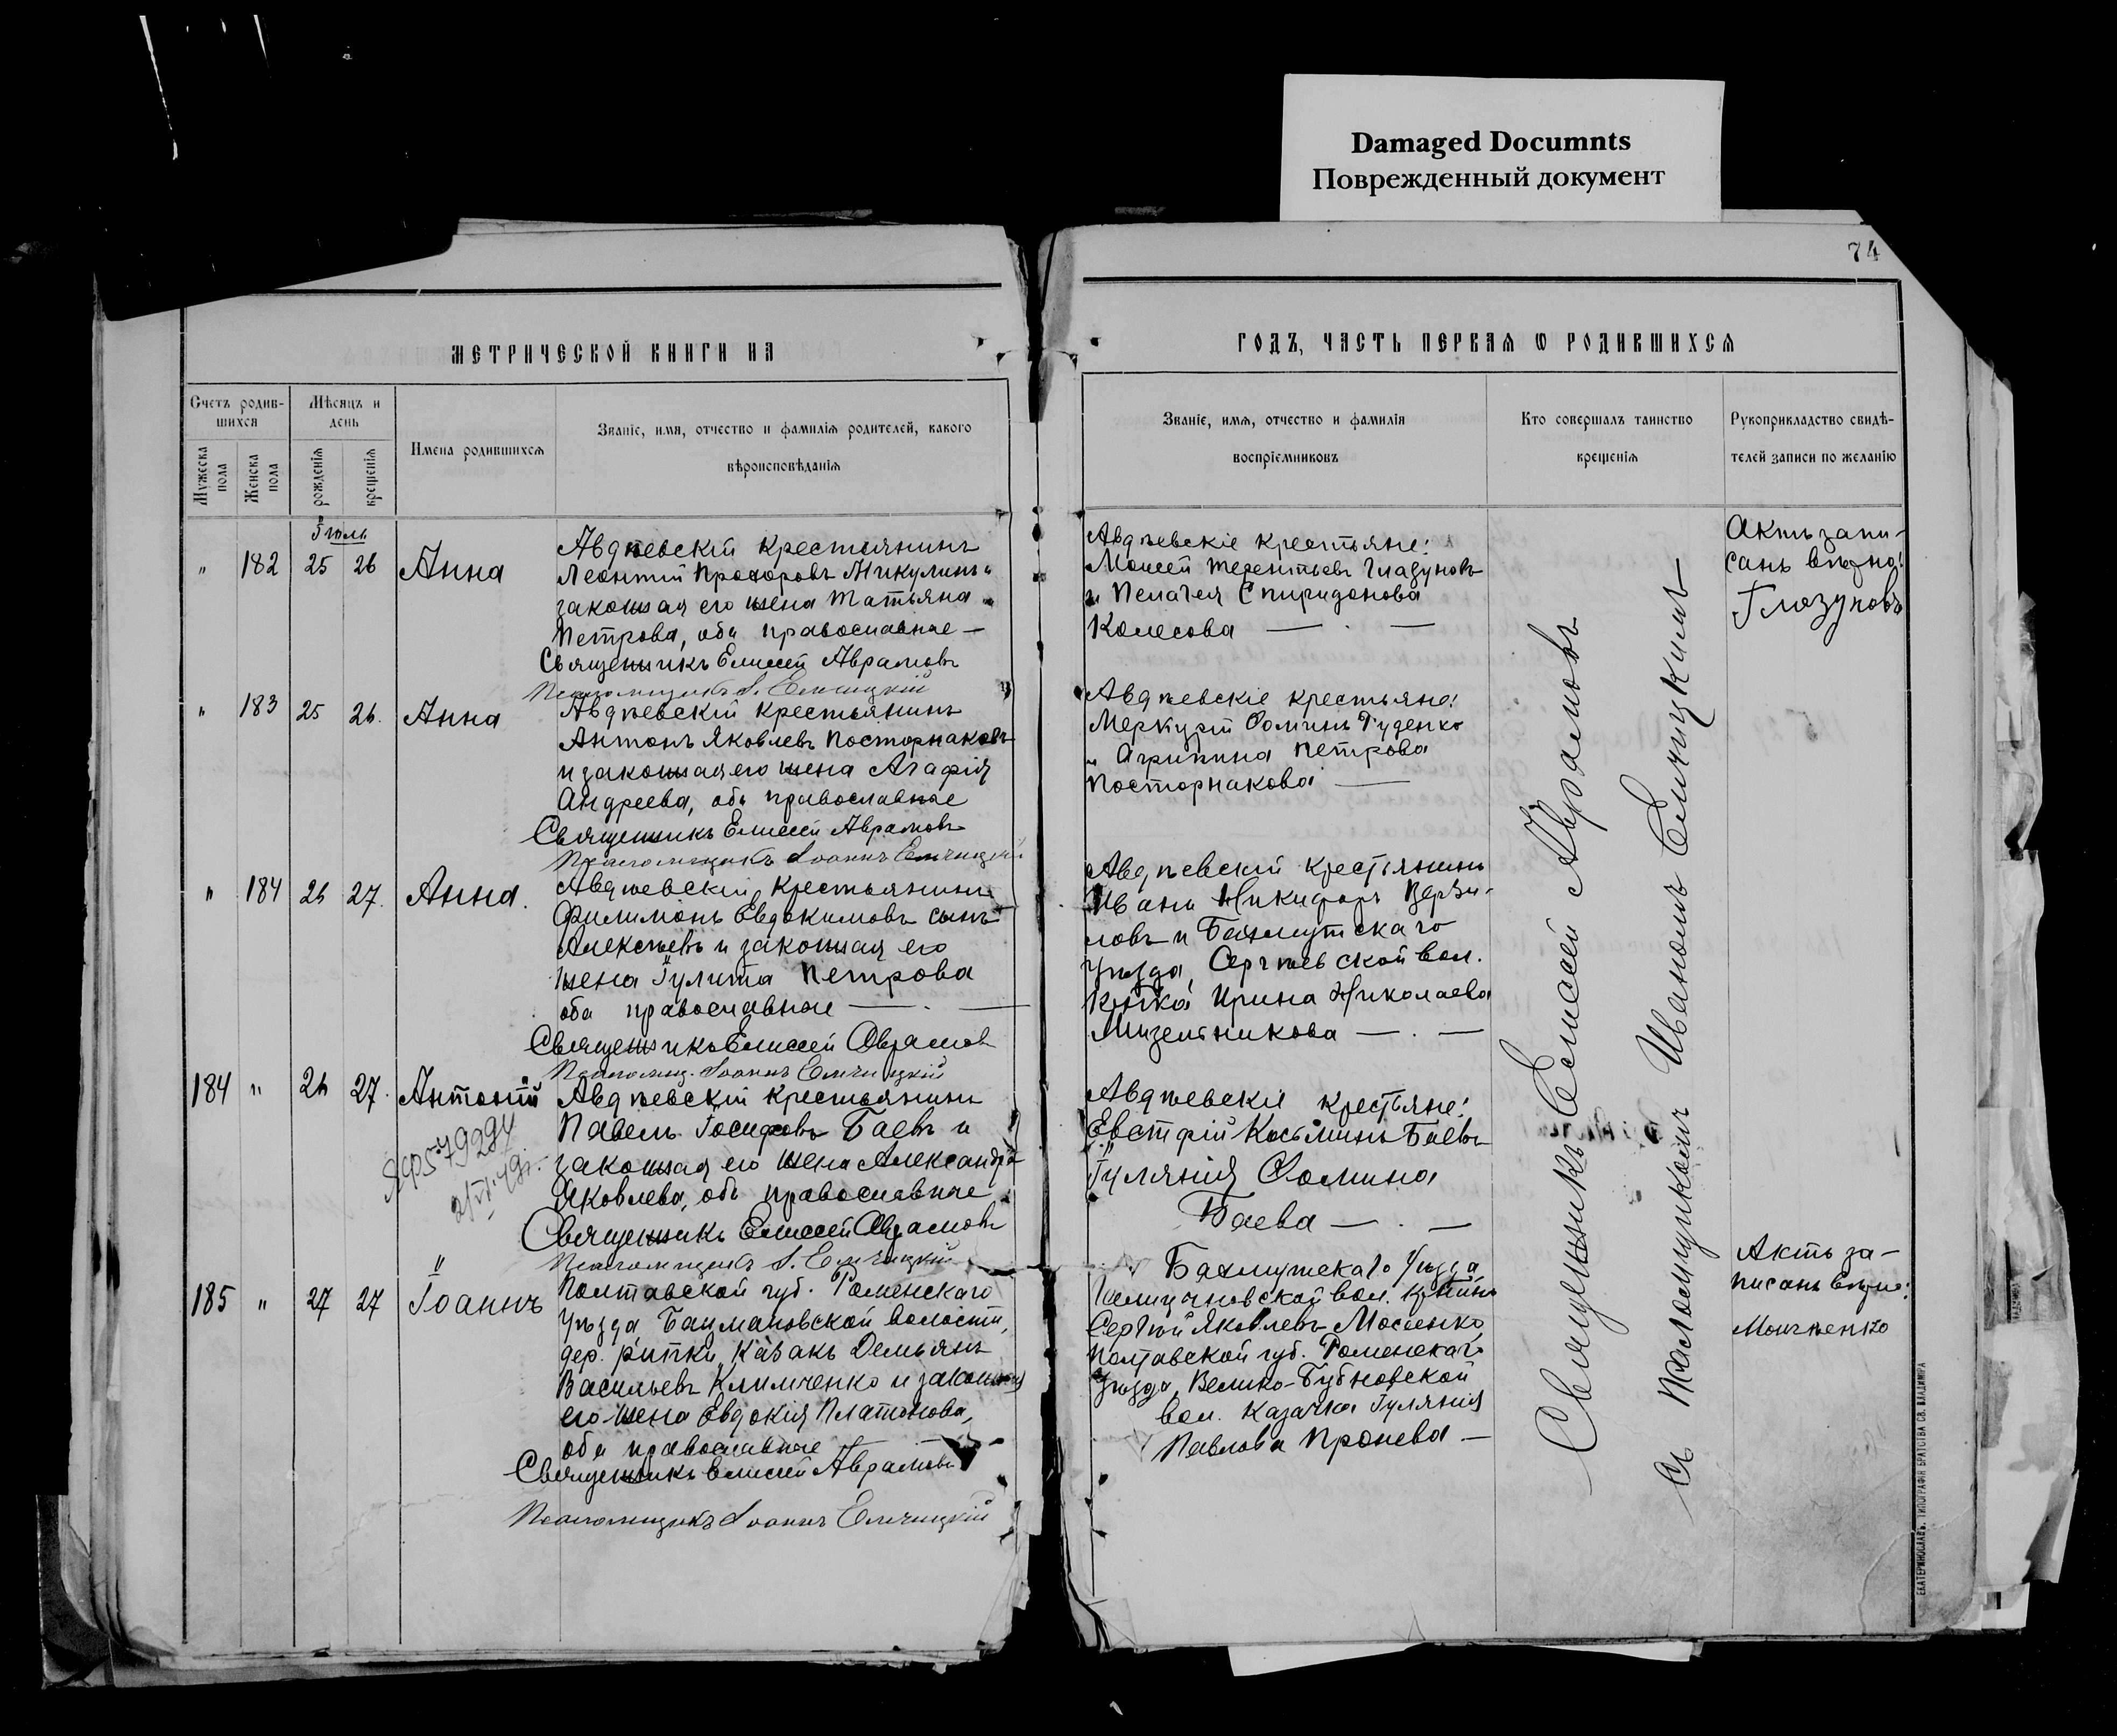 Damaged Documnts
Поврежденный документ
74
МЕТРИЧЕСКОЙ КНИГИ НА
ГОДЪ, ЧАСТЬ ПЕРВАЯ Ѡ РОДИВШИХСЯ
Счетъ родив-
шихся
Мужеска
пола
Женска
пола
Мѣсяцъ и
день
рожденія
крещенія
Имена родившихся
Званіе, имя, отчество и фамилія родителей, какого
вѣроисповѣданія
Званіе, имя, отчество и фамилія
воспріемниковъ
Кто совершалъ таинство
крещенія
Рукоприкладство свидѣ-
телей записи по желанію
Іюль
" 182 25 26 Анна
Авдѣевскій крестьянинъ
Леонтій Прохоровъ Никулинъ и
законная его жена Татьяна
Петрова, оба православные —
Священникъ Елисей Аврамовъ
Псаломщикъ І. Еличицкій
Авдѣевскіе крестьяне:
Моисей Терентьевъ Глазуновъ
и Пелагея Спиридонова
Колесова — . —
Актъ запи-
санъ вѣрно:
Глазуновъ
" 183 25 26. Анна
Авдѣевскій крестьянинъ
Антонъ Яковлевъ Посторнаковъ
и законная его жена Агафія
Андреева, оба православные
Священникъ Елисей Аврамовъ
Псаломщикъ Іоаннъ Еличицкій
Авдѣевскіе крестьяне:
Меркурій Ѳоминъ Руденко
и Агрипина Петрова
Посторнакова —
" 184 26 27. Анна.
Авдѣевскій крестьянинъ
Филимонъ Евдокимовъ сынъ
Алексѣевъ и законная его
жена Іулита Петрова
оба православные — . —
Священникъ Елисей Аврамовъ
Псаломщ. Іоаннъ Еличицкій
Авдѣевскій крестьянинъ
Иванъ Никифоръ
ловъ и Бахмутскаго
уѣзда, Сергѣевской вол.
Ирина Николаева
Мизельникова — . —
184 " 26 27. Антоній
Авдѣевскій крестьянинъ
Павелъ Іосифовъ Баевъ и
законная его жена Александра
Яковлева, оба православные
Священникъ Елисей Аврамовъ
Псаломщикъ І. Еличицкій
579294
Авдѣевскіе крестьяне:
Евстафій Косьминъ Баевъ
Іуліанія Ѳомина
Баева — . —
185 " 27 27 Іоаннъ
Полтавской губ. Роменскаго
уѣзда, волости,
дер. казакъ Демьянъ
Васильевъ Климченко и законная
его жена Евдокія Платонова,
оба православные —
Священникъ Елисей Аврамовъ
Псаломщикъ Іоаннъ Еличицкій
Бахмутскаго уѣзда
вол.
Сергѣй Яковлевъ
Полтавской губ. Роменскаго
уѣзда, Велико-Бубновской
вол. казачка Іуліанія
Павлова Пронева —
Актъ за-
писанъ вѣрно:
Священникъ Елисей Аврамовъ
съ Псаломщикомъ Иваномъ Еличицкимъ
ЕКАТЕРИНОСЛАВЪ. ТИПОГРАФІЯ БРАТСТВА СВ. ВЛАДИМІРА